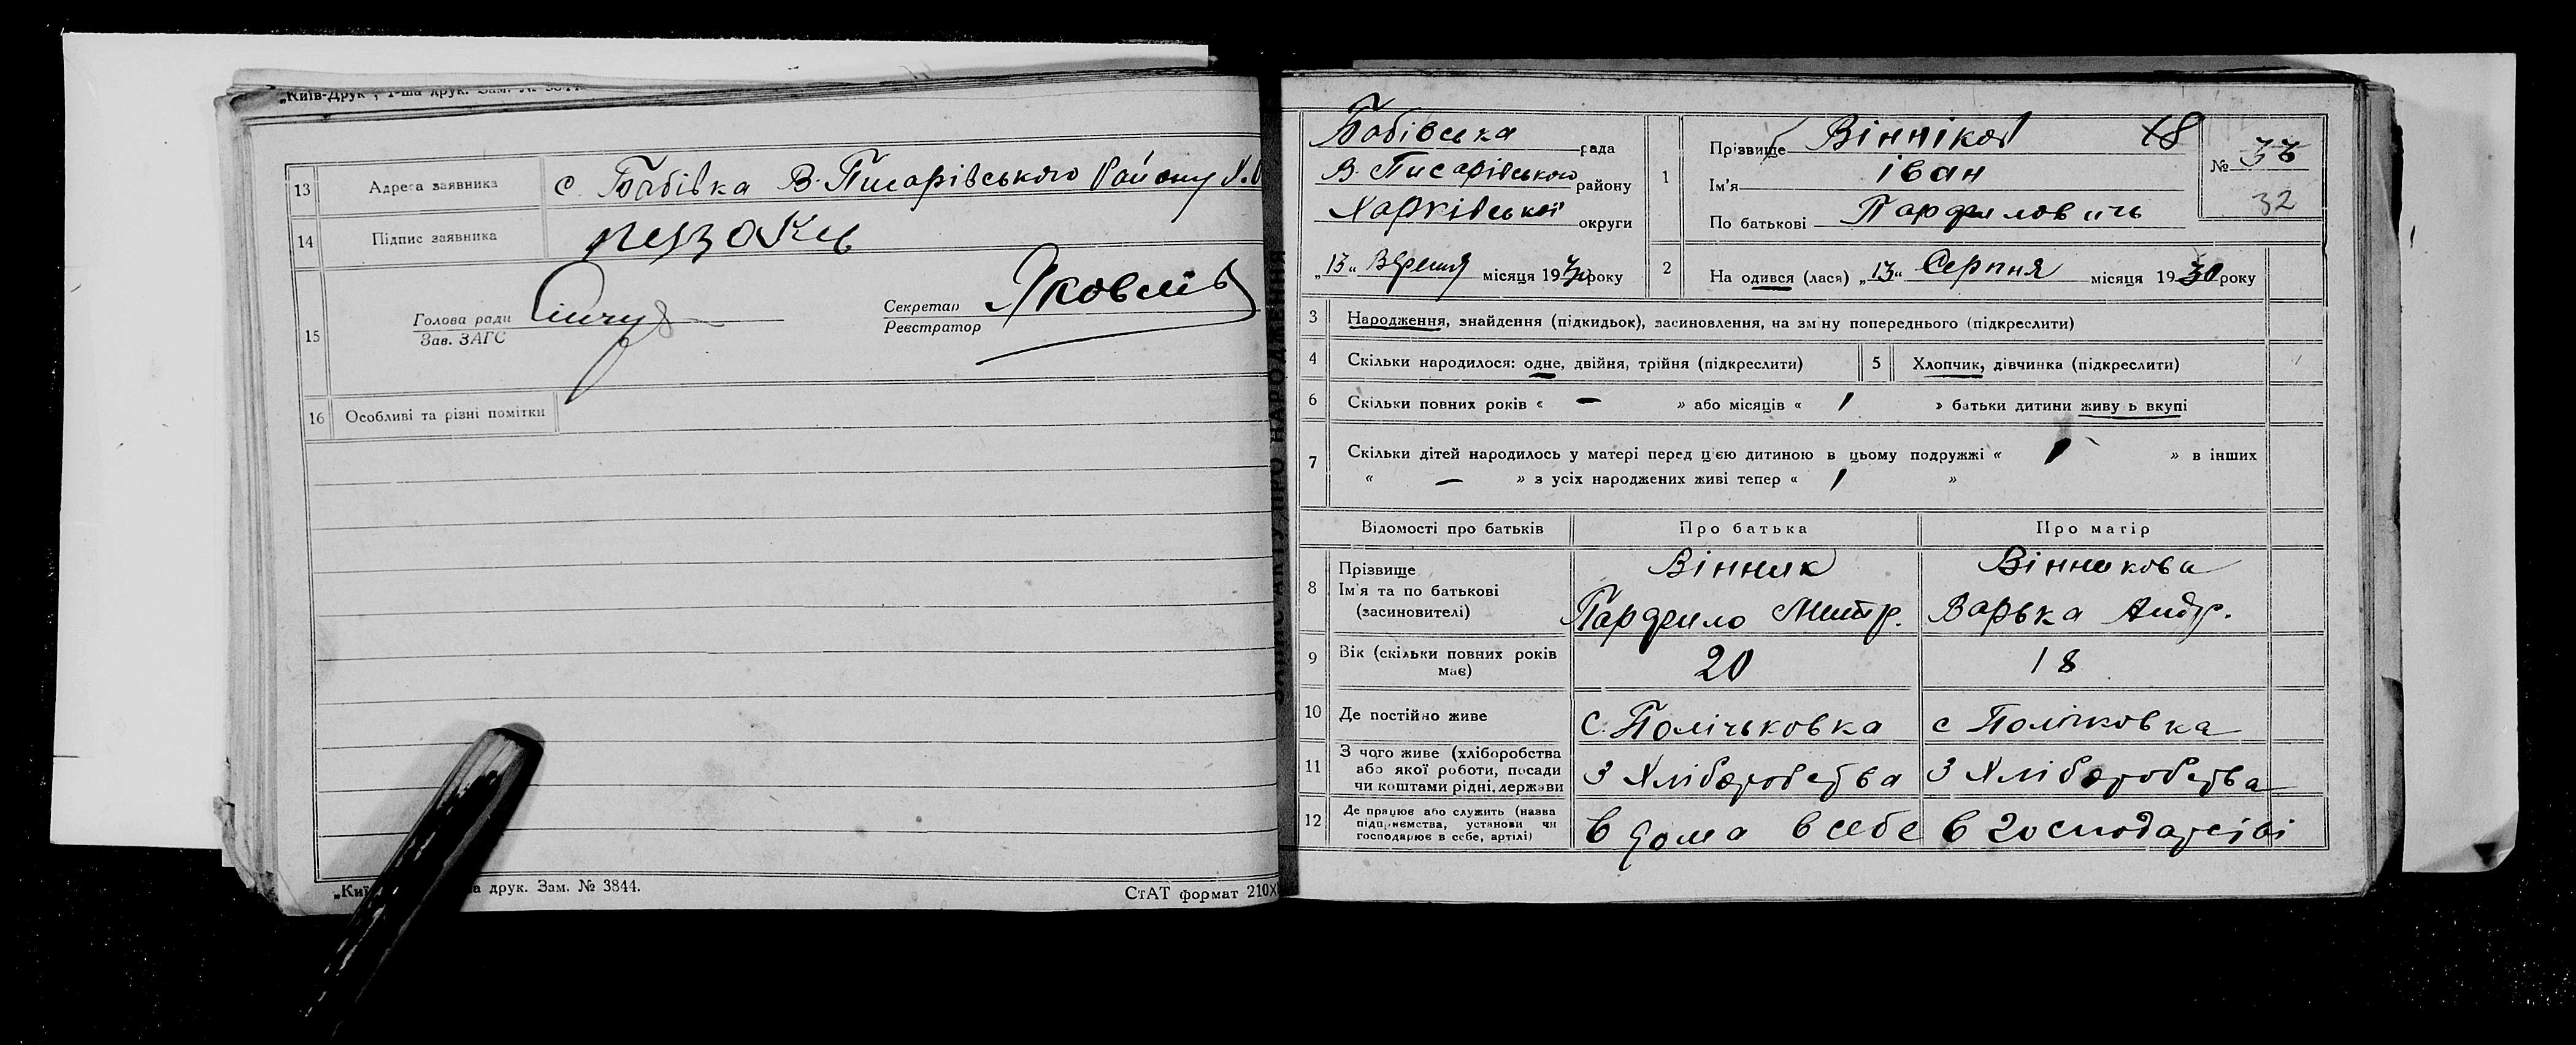 13 Адреса заявника с. Бабівка В. Писарівського Району Х.О
14 Підпис заявника
15 Голова ради
Зав. ЗАГС
Секретар Яковлів
Реєстратор
16 Особливі та різні помітки
друк. Зам. № 3844.
СтАТ формат 210X
Бабівська рада
В. Писарівського району
Харківської округи
„13“ Вересня місяця 1930 року
1 Прізвище Вінніков 18
Ім'я іван
По батькові Парфилович
№ 36
32
2 На одився (лася) „13“ Серпня місяця 1930 року
3 Народження, знайдення (підкидьок), засиновлення, на зм ну попереднього (підкреслити)
4 Скільки народилося: одне, двійня, трійня (підкреслити) 5 Хлопчик, дівчинка (підкреслити)
6 Скільки повних років « — » або місяців « 1 » батьки дитини живу ь вкупі
7 Скільки дітей народилось у матері перед цією дитиною в цьому подружжі « 1 » в інших
« — » з усіх народжених живі тепер « 1 »
Відомості про батьків Про батька Про матір
8 Прізвище Вінник Вінникова
Ім'я та по батькові
(засиновителі) Парфило Митр. Варька Андр.
9 Вік (скільки повних років має) 20 18
10 Де постійно живе с. Полічьковка с Полічковка
11 З чого живе (хліборобства
або якої роботи, посади
чи коштами рідні, держави З Хліборобства З Хліборобства
12 Де працює або служить (назва
підприємства, установи чи
господарює в себе, артілі) в дома в себе в господарстві